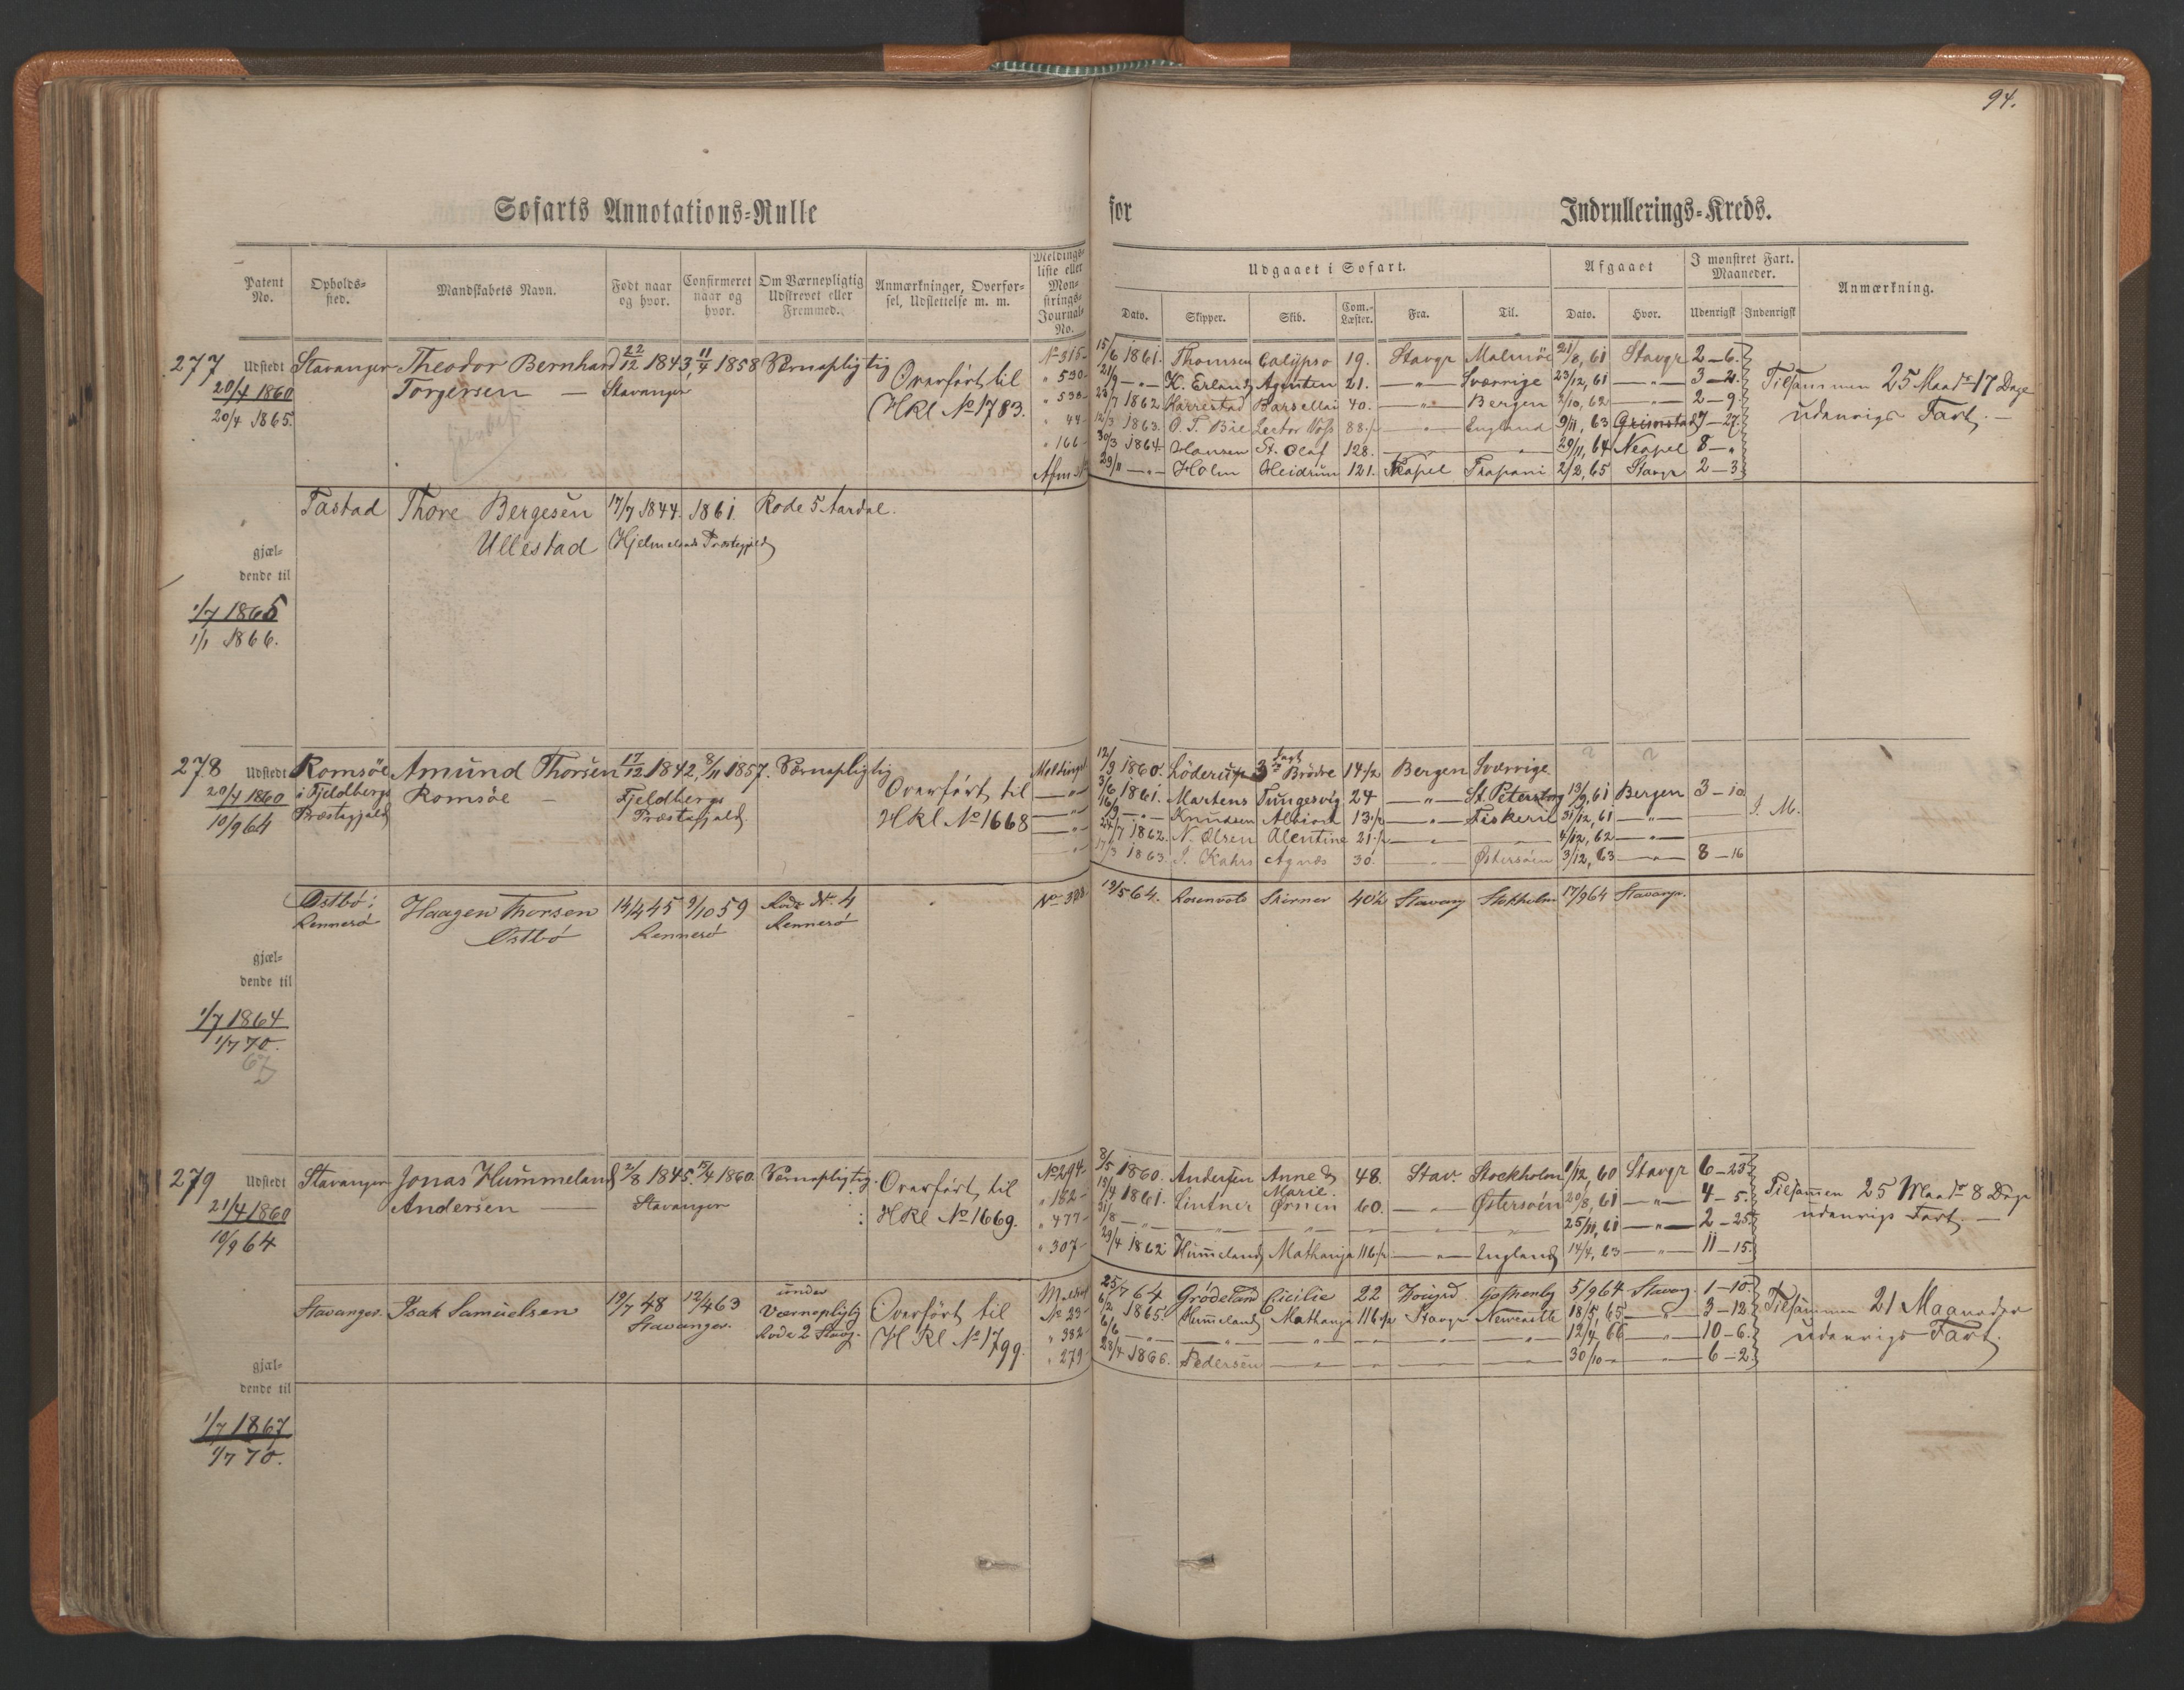 94.
Søfarts Annotations-Rulle for Indrullerings-Kreds.
Patent No. Opholds-sted. Mandskabets Navn. Født naar og hvor. Confirmeret naar og hvor. Om Værnepligtig Udskrevet eller Fremmed. Anmærkninger, Overførsel, Udslettelse m. m. Meldings-liste eller Mønstrings-Journal-No.
Udgaaet i Søfart. Afgaaet I mønstret Fart. Maaneder. Anmærkning.
Dato. Skipper. Skib. Com.-Læster. Fra. Til. Dato. Hvor. Udenrigsk Indenrigsk
277 Udstedt Stavanger Theodor Bernhard 22/12 1843, 11/4 1858 Værnepligtig
20/4 1860 Torgersen — Stavanger Overført til
20/4 1865. HRl No 1783.
No 315 15/6 1861. Thomsen Calypso 19. Stavgr Malmöe 21/8, 61 Stavgr 2–6.
" 590 21/9 –"– K. Erlands Agenten 21. –"– Sverrige 23/12, 61 –"– 3–2.
" 538 23/7 1862 Karrestad Barsellai 40. –"– Bergen 2/10, 62 –"– 2–9.
" 44 12/3 1863. O. T. Bie Lector Voss 88. –"– England 9/11, 63 Grimstad 7–27.
" 166 30/3 1864. Hansen St. Olaf 128. –"– 29/11, 64 Neapel 8–"
Afm 29/11 –"– Holm Heidrun 121. Neapel Trapani 2/2, 65 Stavgr 2–3
Tilsammen 25 Maadr 17 Dage
udenrigs Fart. —
Tastad Thore Bergesen 17/7 1844. 1861. Rode 5 Aardal.
Ullestad Hjelmelands Præstegjeld
gjæl-
dende til
1/7 1865
1/1 1866.
278 Udstedt Romsöe Amund Thorsen 17/12 1842, 8/11 1857. Værnepligtig
20/4 1860 i Fjeldbergs Romsöe — Fjeldbergs Overført til
10/9 64 Præstegjeld Præstegjeld HRl No 1668
12/3 1860. Löderup 3de Brödre 14½ Bergen Sverrige
3/6 1861. Martens Tungesvig 24 –"– St. Petersborg 13/9, 61 Bergen 3–10
16/9 –"– Knudsen 13½ –"– Fiskeri 31/12, 61 –"–
24/7 1862. N. Olsen Alentine 21½ –"– 4/12, 62 –"–
17/3 1863. J. Kahrs Agnes 30. –"– Østersöen 3/12, 63 –"– 8–16
J. M.
Østbö: Haagen Thorsen 14/4 45 9/10 59 Rode No. 4
Rennesö Østbö Rennesö Rennesö
19/5 64. Rosenvold Skirner 40½ Stavang Stokholm 17/9 64 Stavangr.
gjæl-
dende til
1/7 1864
1/7 70.
67
279 Udstedt Stavanger Jonas Hummeland 2/8 1845. 15/4 1860. Værnepligtig.
21/4 1860 Andersen — Stavanger Overført til
10/9 64 HRl No 1669.
No 294 8/5 1860. Andersen Anne & Marie. 48. Stav. Stockholm 1/12, 60 Stavgr 6–23
" 182 19/4 1861. Lintner Ørnen 60. –"– Østersöen 20/8, 61 –"– 4–5.
" 477 31/8 –"– –"– –"– –"– 25/11, 61 –"– 2–25
" 307 29/4 1862 Hummeland Mathanja 116½ –"– England 14/4, 63 –"– 11–15.
Tilsammen 25 Maadr 8 Dage
udenrigs Fart. —
Stavanger. Isak Samuelsen 19/7 48 12/4 63 under
Stavanger. Værnepligtg Overført til
Rode 2 Stavg. HRl No 1799.
25/7 64 Grödeland Cicilie 22 Gothenbg 5/9 64 Stavang. 1–10.
No 29 6/2 1865. Hummeland Mathanja 116½ Stavgr Newcastle 18/5, 65 –"– 3–12.
" 382 6/6 –"– –"– –"– –"– –"– –"– 12/4, 66 –"– 10–6.
" 279 28/4 1866. Pedersen –"– –"– –"– –"– 30/10 –"– –"– 6–2.
Tilsammen 21 Maaneder
udenrigs Fart.
gjæl-
dende til
1/7 1867
1/7 70.